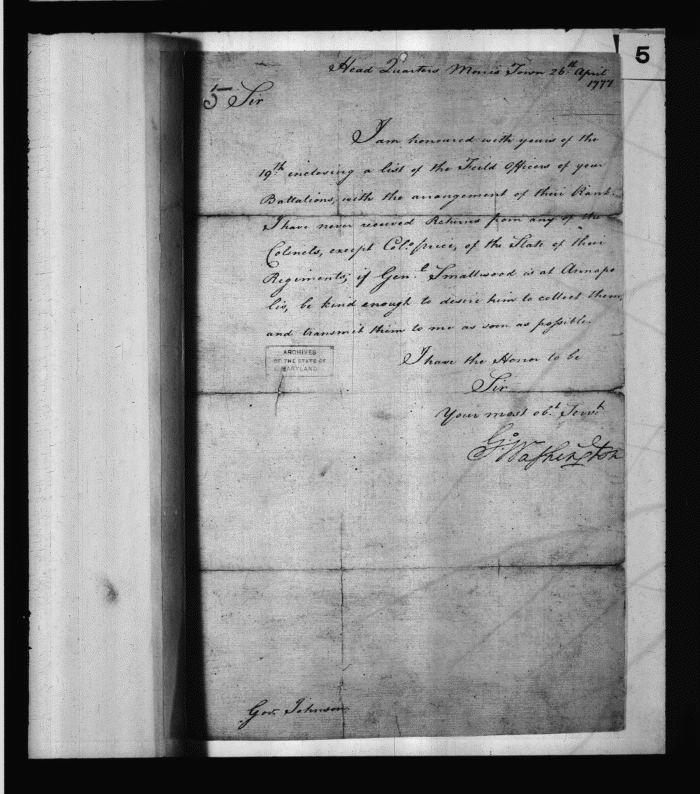 5
Head Quarters Morris Town 26th April
1777
5 Sir
I am honoured with yours of the
19th inclosing a list of the Field Officers of your
Battalions, with the arrangement of their Rank.
I have never received Returns from any of the
Colonels, except Colo. Price, of the State of their
Regiments; if Genl. Smallwood is at Annapo
lis, be kind enough to desire him to collect them,
and transmit them to me as soon as possible.
ARCHIVES
OF THE STATE OF
MARYLAND
I have the Honor to be
Sir
Your most obt. Servt.
Go. Washington
Gov. Johnson